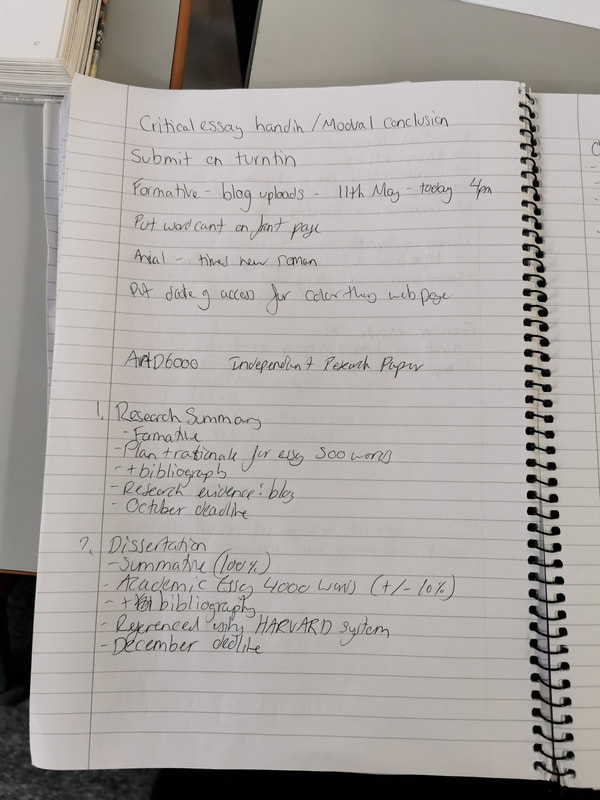 47
Critical essay handin / Modual conclusion
Submit on turntin
Formative - blog uploads - 11th May - today 4pm
Put word cant on front page
Arial - times new roman
Put date of access for color they web page
ARTD6000 Independant Research Paper
1. Research Summary
- Formative
- Plan + rationale for essy 500 words
- + bibliography
- Research evidence: blog
- October deadline
2. Dissertation
- Summative (100%)
- Academic Essy 4000 words (+/- 10%)
- + bibliography
- Referenced using HARVARD system
- December dedline
C